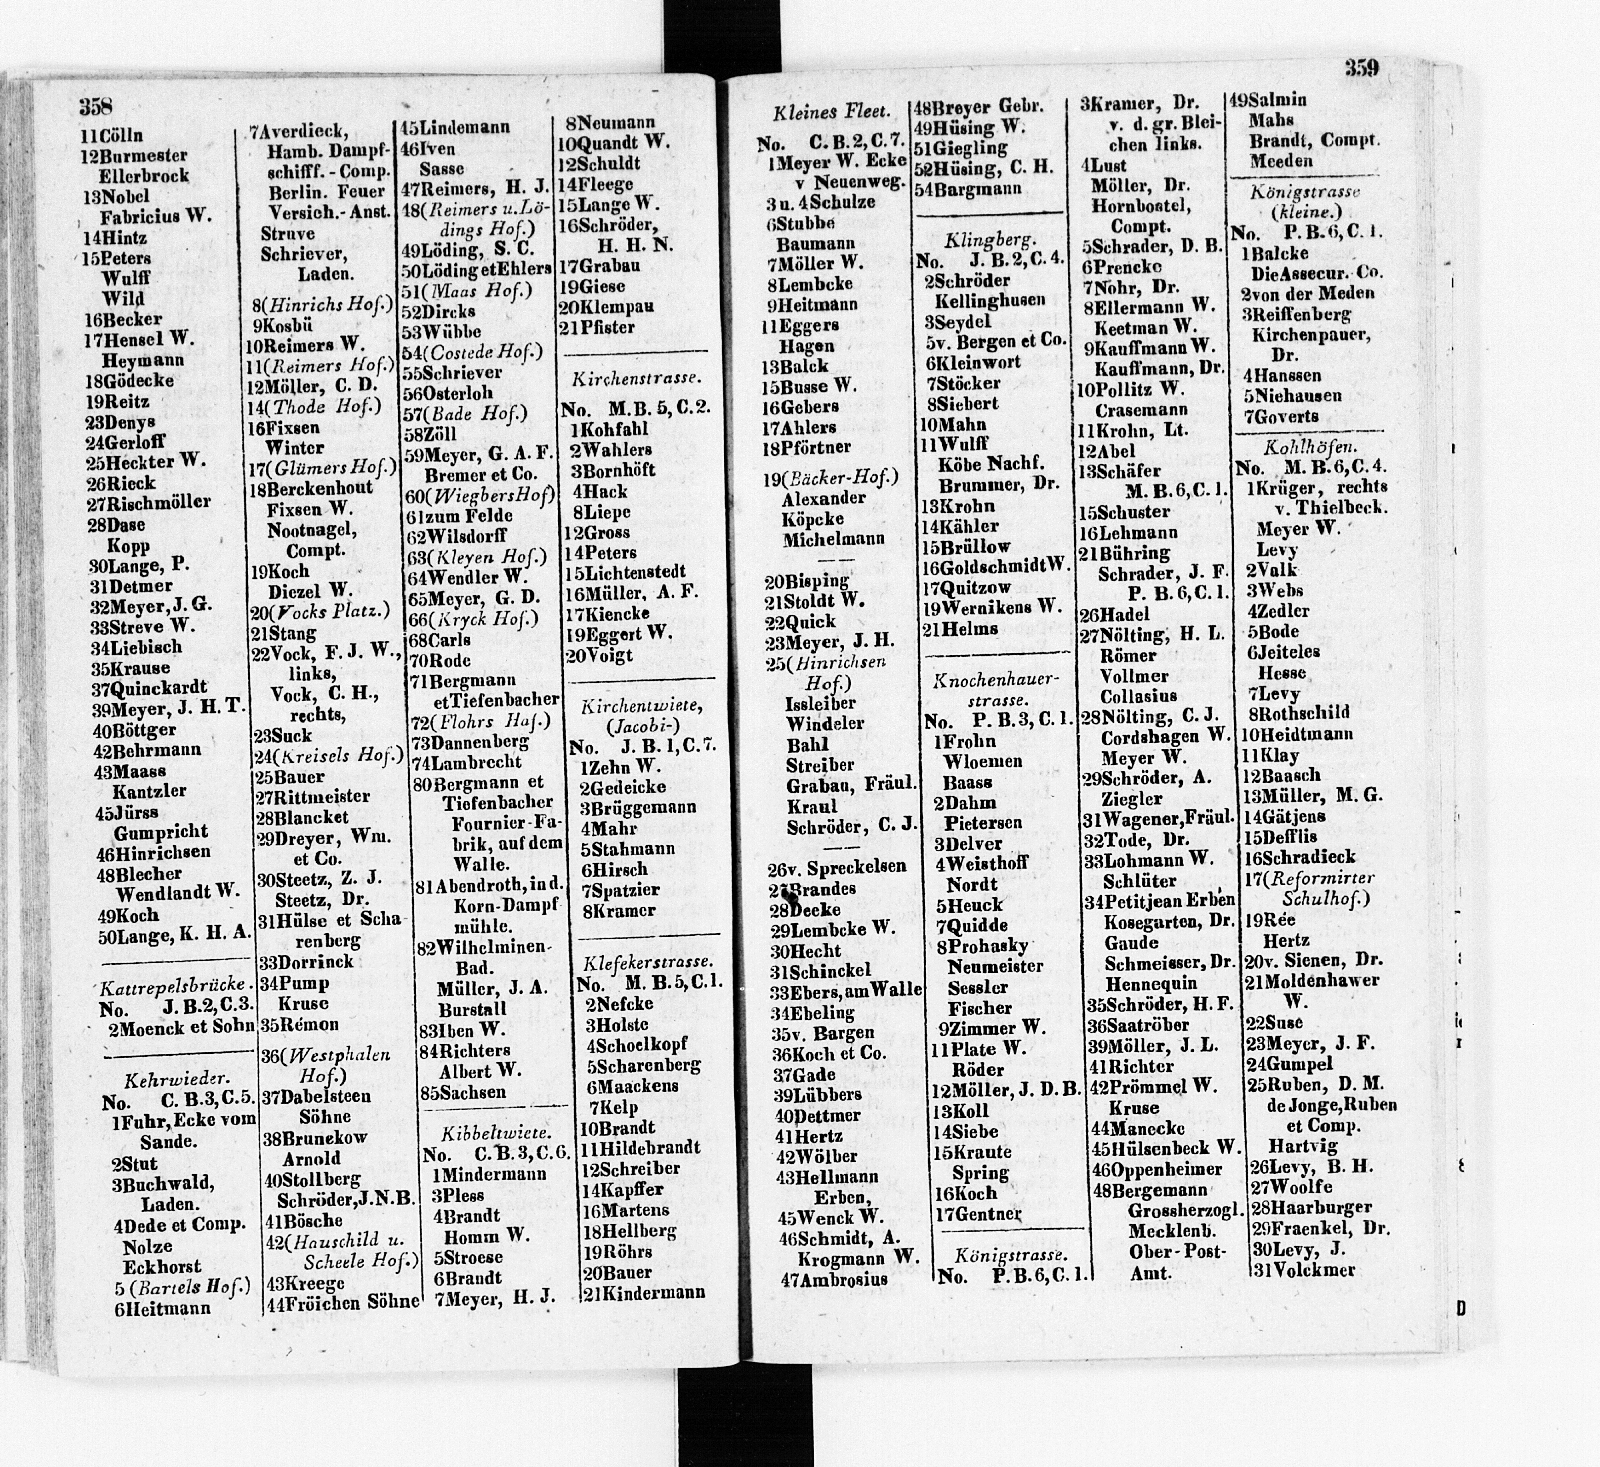 358
11Cölln
12Burmester
Ellerbrock
13Nobel
Fabricius W.
14Hintz
15Peters
Wulff
Wild
16Becker
17Hensel W.
Heymann
18Gödecke
19Reitz
23Denys
24Gerloff
25Heckter W.
26Rieck
27Rischmöller
28Dase
Kopp
30Lange, P.
31Detmer
32Meyer, J. G.
33Streve W.
34Liebisch
35Krause
37Quinckardt
39Meyer, J. H. T.
40Böttger
42Behrmann
43Maass
Kantzler
45Jürss
Gumpricht
46Hinrichsen
48Blecher
Wendlandt W.
49Koch
50Lange, K. H. A.
Kattrepelsbrücke.
No. J. B. 2, C. 3.
2Moenck et Sohn
Kehrwieder.
No. C. B. 3, C. 5.
1Fuhr, Ecke vom
Sande.
2Stut
3Buchwald,
Laden.
4Dede et Comp.
Nolze
Eckhorst
5 (Bartels Hof.)
6Heitmann
7Averdieck,
Hamb. Dampf-
schifff.-Comp.
Berlin. Feuer
Versich.-Anst.
Struve
Schriever,
Laden.
8(Hinrichs Hof.)
9Kosbü
10Reimers W.
11(Reimers Hof.)
12Möller, C. D.
14(Thode Hof.)
16Fixsen
Winter
17(Glümers Hof.)
18Berckenhout
Fixsen W.
Nootnagel,
Compt.
19Koch
Diezel W.
20(Vocks Platz.)
21Stang
22Vock, F. J. W.,
links,
Vock, C. H.,
rechts,
23Suck
24(Kreisels Hof.)
25Bauer
27Rittmeister
28Blancket
29Dreyer, Wm.
et Co.
30Steetz, Z. J.
Steetz, Dr.
31Hülse et Scha
renberg
33Dorrinck
34Pump
Kruse
35Rémon
36(Westphalen
Hof.)
37Dabelsteen
Söhne
38Brunekow
Arnold
40Stollberg
Schröder, J. N. B.
41Bösche
42(Hauschild u.
Scheele Hof.)
43Kreege
44Fröichen Söhne
45Lindemann
46Iven
Sasse
47Reimers, H. J.
48(Reimers u. Lö-
dings Hof.)
49Löding, S. C.
50Löding et Ehlers
51(Maas Hof.)
52Dircks
53Wübbe
54(Costede Hof.)
55Schriever
56Osterloh
57(Bade Hof.)
58Zöll
59Meyer, G. A. F.
Bremer et Co.
60(Wiegbers Hof)
61zum Felde
62Wilsdorff
63(Kleyen Hof.)
64Wendler W.
65Meyer, G. D.
66(Kryck Hof.)
68Carls
70Rode
71Bergmann
et Tiefenbacher
72(Flohrs Hof.)
73Dannenberg
74Lambrecht
80Bergmann et
Tiefenbacher
Fournier-Fa-
brik, auf dem
Walle.
81Abendroth, in d.
Korn-Dampf
mühle.
82Wilhelminen-
Bad.
Müller, J. A.
Burstall
83Iben W.
84Richters
Albert W.
85Sachsen
Kibbeltwiete.
No. C. B. 3, C. 6.
1Mindermann
3Pless
4Brandt
Homm W.
5Stroese
6Brandt
7Meyer, H. J.
8Neumann
10Quandt W.
12Schuldt
14Fleege
15Lange W.
16Schröder,
H. H. N.
17Grabau
19Giese
20Klempau
21Pfister
Kirchenstrasse.
No. M. B. 5, C. 2.
1Kohfahl
2Wahlers
3Bornhöft
4Hack
8Liepe
12Gross
14Peters
15Lichtenstedt
16Müller, A. F.
17Kiencke
19Eggert W.
20Voigt
Kirchentwiete,
(Jacobi-)
No. J. B. 1, C. 7.
1Zehn W.
2Gedeicke
3Brüggemann
4Mahr
5Stahmann
6Hirsch
7Spatzier
8Kramer
Klefekerstrasse.
No. M. B. 5, C. 1.
2Nefcke
3Holste
4Schoelkopf
5Scharenberg
6Maackens
7Kelp
10Brandt
11Hildebrandt
12Schreiber
14Kapffer
16Martens
18Hellberg
19Röhrs
20Bauer
21Kindermann
359
Kleines Fleet.
No. C. B. 2, C. 7.
1Meyer W. Ecke
v Neuenweg.
3 u. 4Schulze
6Stubbe
Baumann
7Möller W.
8Lembcke
9Heitmann
11Eggers
Hagen
13Balck
15Busse W.
16Gebers
17Ahlers
18Pförtner
19(Bäcker-Hof.)
Alexander
Köpcke
Michelmann
20Bisping
21Stoldt W.
22Quick
23Meyer, J. H.
25(Hinrichsen
Hof.)
Issleiber
Windeler
Bahl
Streiber
Grabau, Fräul.
Kraul
Schröder, C. J.
26v. Spreckelsen
27Brandes
28Decke
29Lembcke W.
30Hecht
31Schinckel
33Ebers, am Walle
34Ebeling
35v. Bargen
36Koch et Co.
37Gade
39Lübbers
40Dettmer
41Hertz
42Wölber
43Hellmann
Erben,
45Wenck W.
46Schmidt, A.
Krogmann W.
47Ambrosius
48Breyer Gebr.
49Hüsing W.
51Giegling
52Hüsing, C. H.
54Bargmann
Klingberg.
No. J. B. 2, C. 4.
2Schröder
Kellinghusen
3Seydel
5v. Bergen et Co.
6Kleinwort
7Stöcker
8Siebert
10Mahn
11Wulff
Köbe Nachf.
Brummer, Dr.
13Krohn
14Kähler
15Brüllow
16Goldschmidt W.
17Quitzow
19Wernikens W.
21Helms
Knochenhauer-
strasse.
No. P. B. 3, C. 1.
1Frohn
Wloemen
Baass
2Dahm
Pietersen
3Delver
4Weisthoff
Nordt
5Heuck
7Quidde
8Prohasky
Neumeister
Sessler
Fischer
9Zimmer W.
11Plate W.
Röder
12Möller, J. D. B.
13Koll
14Siebe
15Kraute
Spring
16Koch
17Gentner
Königstrasse.
No. P. B. 6, C. 1.
3Kramer, Dr.
v. d. gr. Blei-
chen links.
4Lust
Möller, Dr.
Hornbostel,
Compt.
5Schrader, D. B.
6Prencke
7Nohr, Dr.
8Ellermann W.
Keetman W.
9Kauffmann W.
Kauffmann, Dr.
10Pollitz W.
Crasemann
11Krohn, Lt.
12Abel
13Schäfer
M. B. 6, C. 1.
15Schuster
16Lehmann
21Bühring
Schrader, J. F.
P. B. 6, C. 1.
26Hadel
27Nölting, H. L.
Römer
Vollmer
Collasius
28Nölting, C. J.
Cordshagen W.
Meyer W.
29Schröder, A.
Ziegler
31Wagener, Fräul.
32Tode, Dr.
33Lohmann W.
Schlüter
34Petitjean Erben
Kosegarten, Dr.
Gaude
Schmeisser, Dr.
Hennequin
35Schröder, H. F.
36Saatröber
39Möller, J. L.
41Richter
42Prömmel W.
Kruse
44Manecke
45Hülsenbeck W.
46Oppenheimer
48Bergemann
Grossherzogl.
Mecklenb.
Ober-Post-
Amt.
49Salmin
Mahs
Brandt, Compt.
Meeden
Königstrasse
(kleine.)
No. P. B. 6, C. 1.
1Balcke
Die Assecur. Co.
2von der Meden
3Reiffenberg
Kirchenpauer,
Dr.
4Hanssen
5Niehausen
7Goverts
Kohlhöfen.
No. M. B. 6, C. 4.
1Krüger, rechts
v. Thielbeck.
Meyer W.
Levy
2Valk
3Webs
4Zedler
5Bode
6Jeiteles
Hesse
7Levy
8Rothschild
10Heidtmann
11Klay
12Baasch
13Müller, M. G.
14Gätjens
15Defflis
16Schradieck
17(Reformirter
Schulhof.)
19Rée
Hertz
20v. Sienen, Dr.
21Moldenhawer
W.
22Suse
23Meyer, J. F.
24Gumpel
25Ruben, D. M.
de Jonge, Ruben
et Comp.
Hartvig
26Levy, B. H.
27Woolfe
28Haarburger
29Fraenkel, Dr.
30Levy, J.
31Volckmer